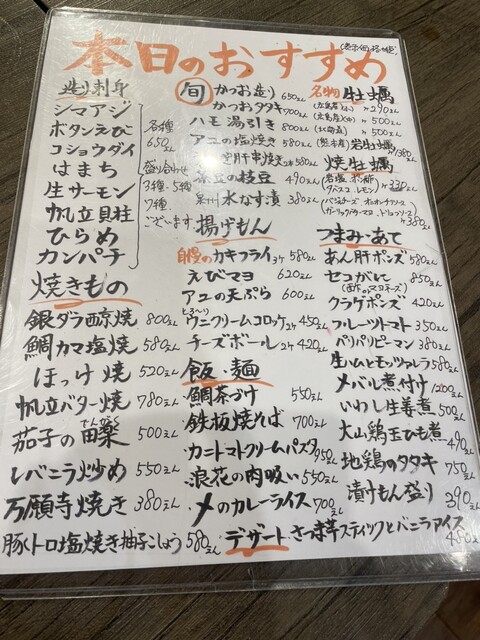 本日のおすすめ
造り刺身
シマアジ
ボタンえび
コショウダイ
はまち
生サーモン
帆立貝柱
ひらめ
カンパチ
各種
650えん
盛り合わせ
3種・5種
7種、
ございます
焼きもの
銀ダラ西京焼 800えん
鯛カマ塩焼 580えん
ほっけ焼 520えん
帆立バター焼 780えん
茄子の田楽 500えん
レバニラ炒め 550えん
万願寺焼き 380えん
豚トロ塩焼き柚子こしょう 580えん
旬 かつお造り 650えん
かつおタタキ 700えん
ハモ湯引き 800えん
アユの塩焼き 580えん
肝串焼 2本 580えん
茶豆の枝豆 490えん
泉州水なす漬 380えん
揚げもん
自慢のカキフライ 3ケ 580えん
えびマヨ 620えん
アユの天ぷら 600えん
とろ〜り
ウニクリームコロッケ 2ケ 450えん
チーズボール 2ケ 420えん
飯・麺
鯛茶づけ 550えん
鉄板焼そば 700えん
カニトマトクリームパスタ 950えん
浪花の肉吸い 550えん
〆のカレーライス 700えん
デザート さつま芋スティックとバニラアイス 480えん
名物 牡蠣
290えん
500えん
500えん
(熊本産) 岩牡蠣 380えん
焼牡蠣
タバスコ レモン
330えん
380えん
つまみ・あて
あん肝ポンズ 580えん
セコがに 850えん
クラゲポンズ 420えん
フルーツトマト 350えん
パリパリピーマン 380えん
生ハムとモッツァレラ 580えん
メバル煮付け 1200えん
いわし生姜煮 500えん
大山鶏玉ひも煮 490えん
地鶏のタタキ 750えん
漬けもん盛り 390えん